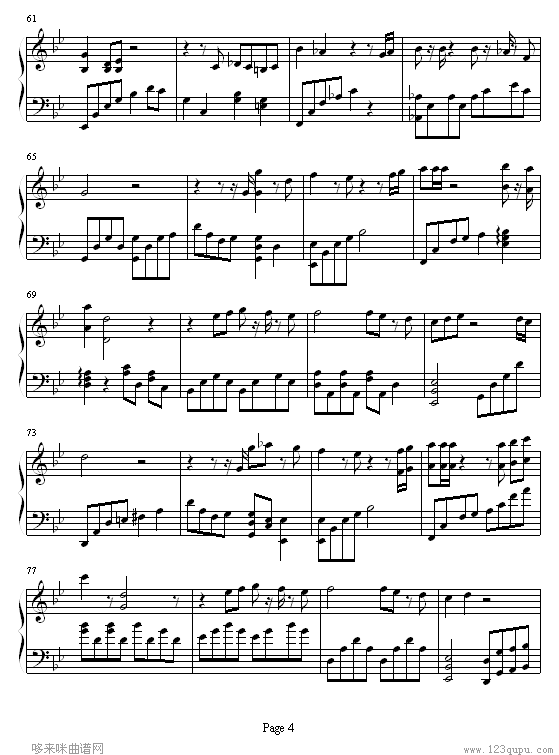 61
65
69
73
77
Page 4
哆来咪曲谱网
www.123qupu.com